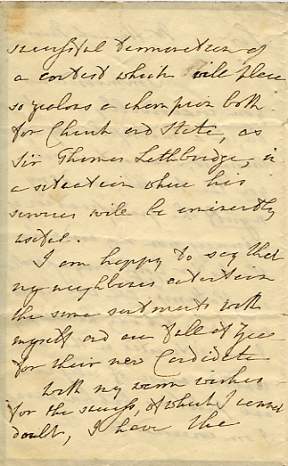 successful termination of
a contest which will place
so zealous a champion both
for Church and State, as
Sir Thomas Lethbridge, in
a situation where his
services will be eminently
useful.
I am happy to say that
my neighbours entertain
the same sentiments with
myself and are full of zeal
for their new Candidate
With my warm wishes
for the success, of which I cannot
doubt, I have the